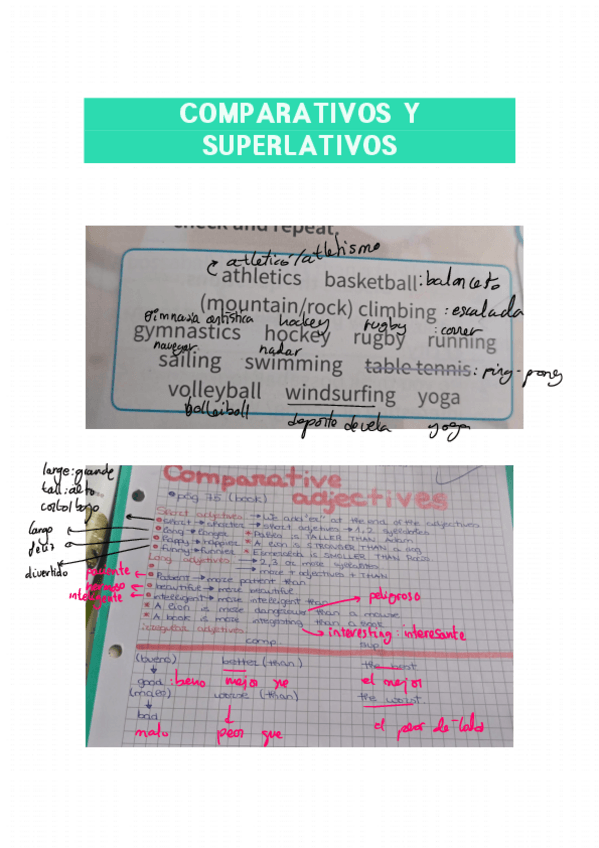 COMPARATIVOS Y
SUPERLATIVOS
check and repeat.
atletico/atletismo
athletics basketball : baloncesto
(mountain/rock) climbing : escalada
gimnasia artística hockey rugby : correr
gymnastics hockey rugby running
navegar nadar
sailing swimming table tennis : ping-pong
volleyball windsurfing yoga
deporte de vela yoga
large: grande
tall: alto
largo
feliz
divertido
paciente
hermoso
inteligente
Comparative
adjectives
pág 75 (book)
Short adjectives → We add "er" at the end of the adjectives
short → shorter → short adjetives → 1, 2, syllables
long → longer TALLER THAN
happy → happier A lion is STRONGER THAN a dog
funny → funnier Esmeralda is SMALLER THAN
Long adjectives → 2, 3, or more syllables
→ more + adjectives + THAN
Patient → more patient than
beautiful → more beautiful
intelligent → more intelligent than
peligroso
A lion is more dangerous than a mouse
A book is more than a
interesting : interesante
Irregular adjectives
comp. sup.
(bueno) better (than) the best
good : mejor que el mejor
(malo) worse (than) the worst
bad
malo peor que el peor de